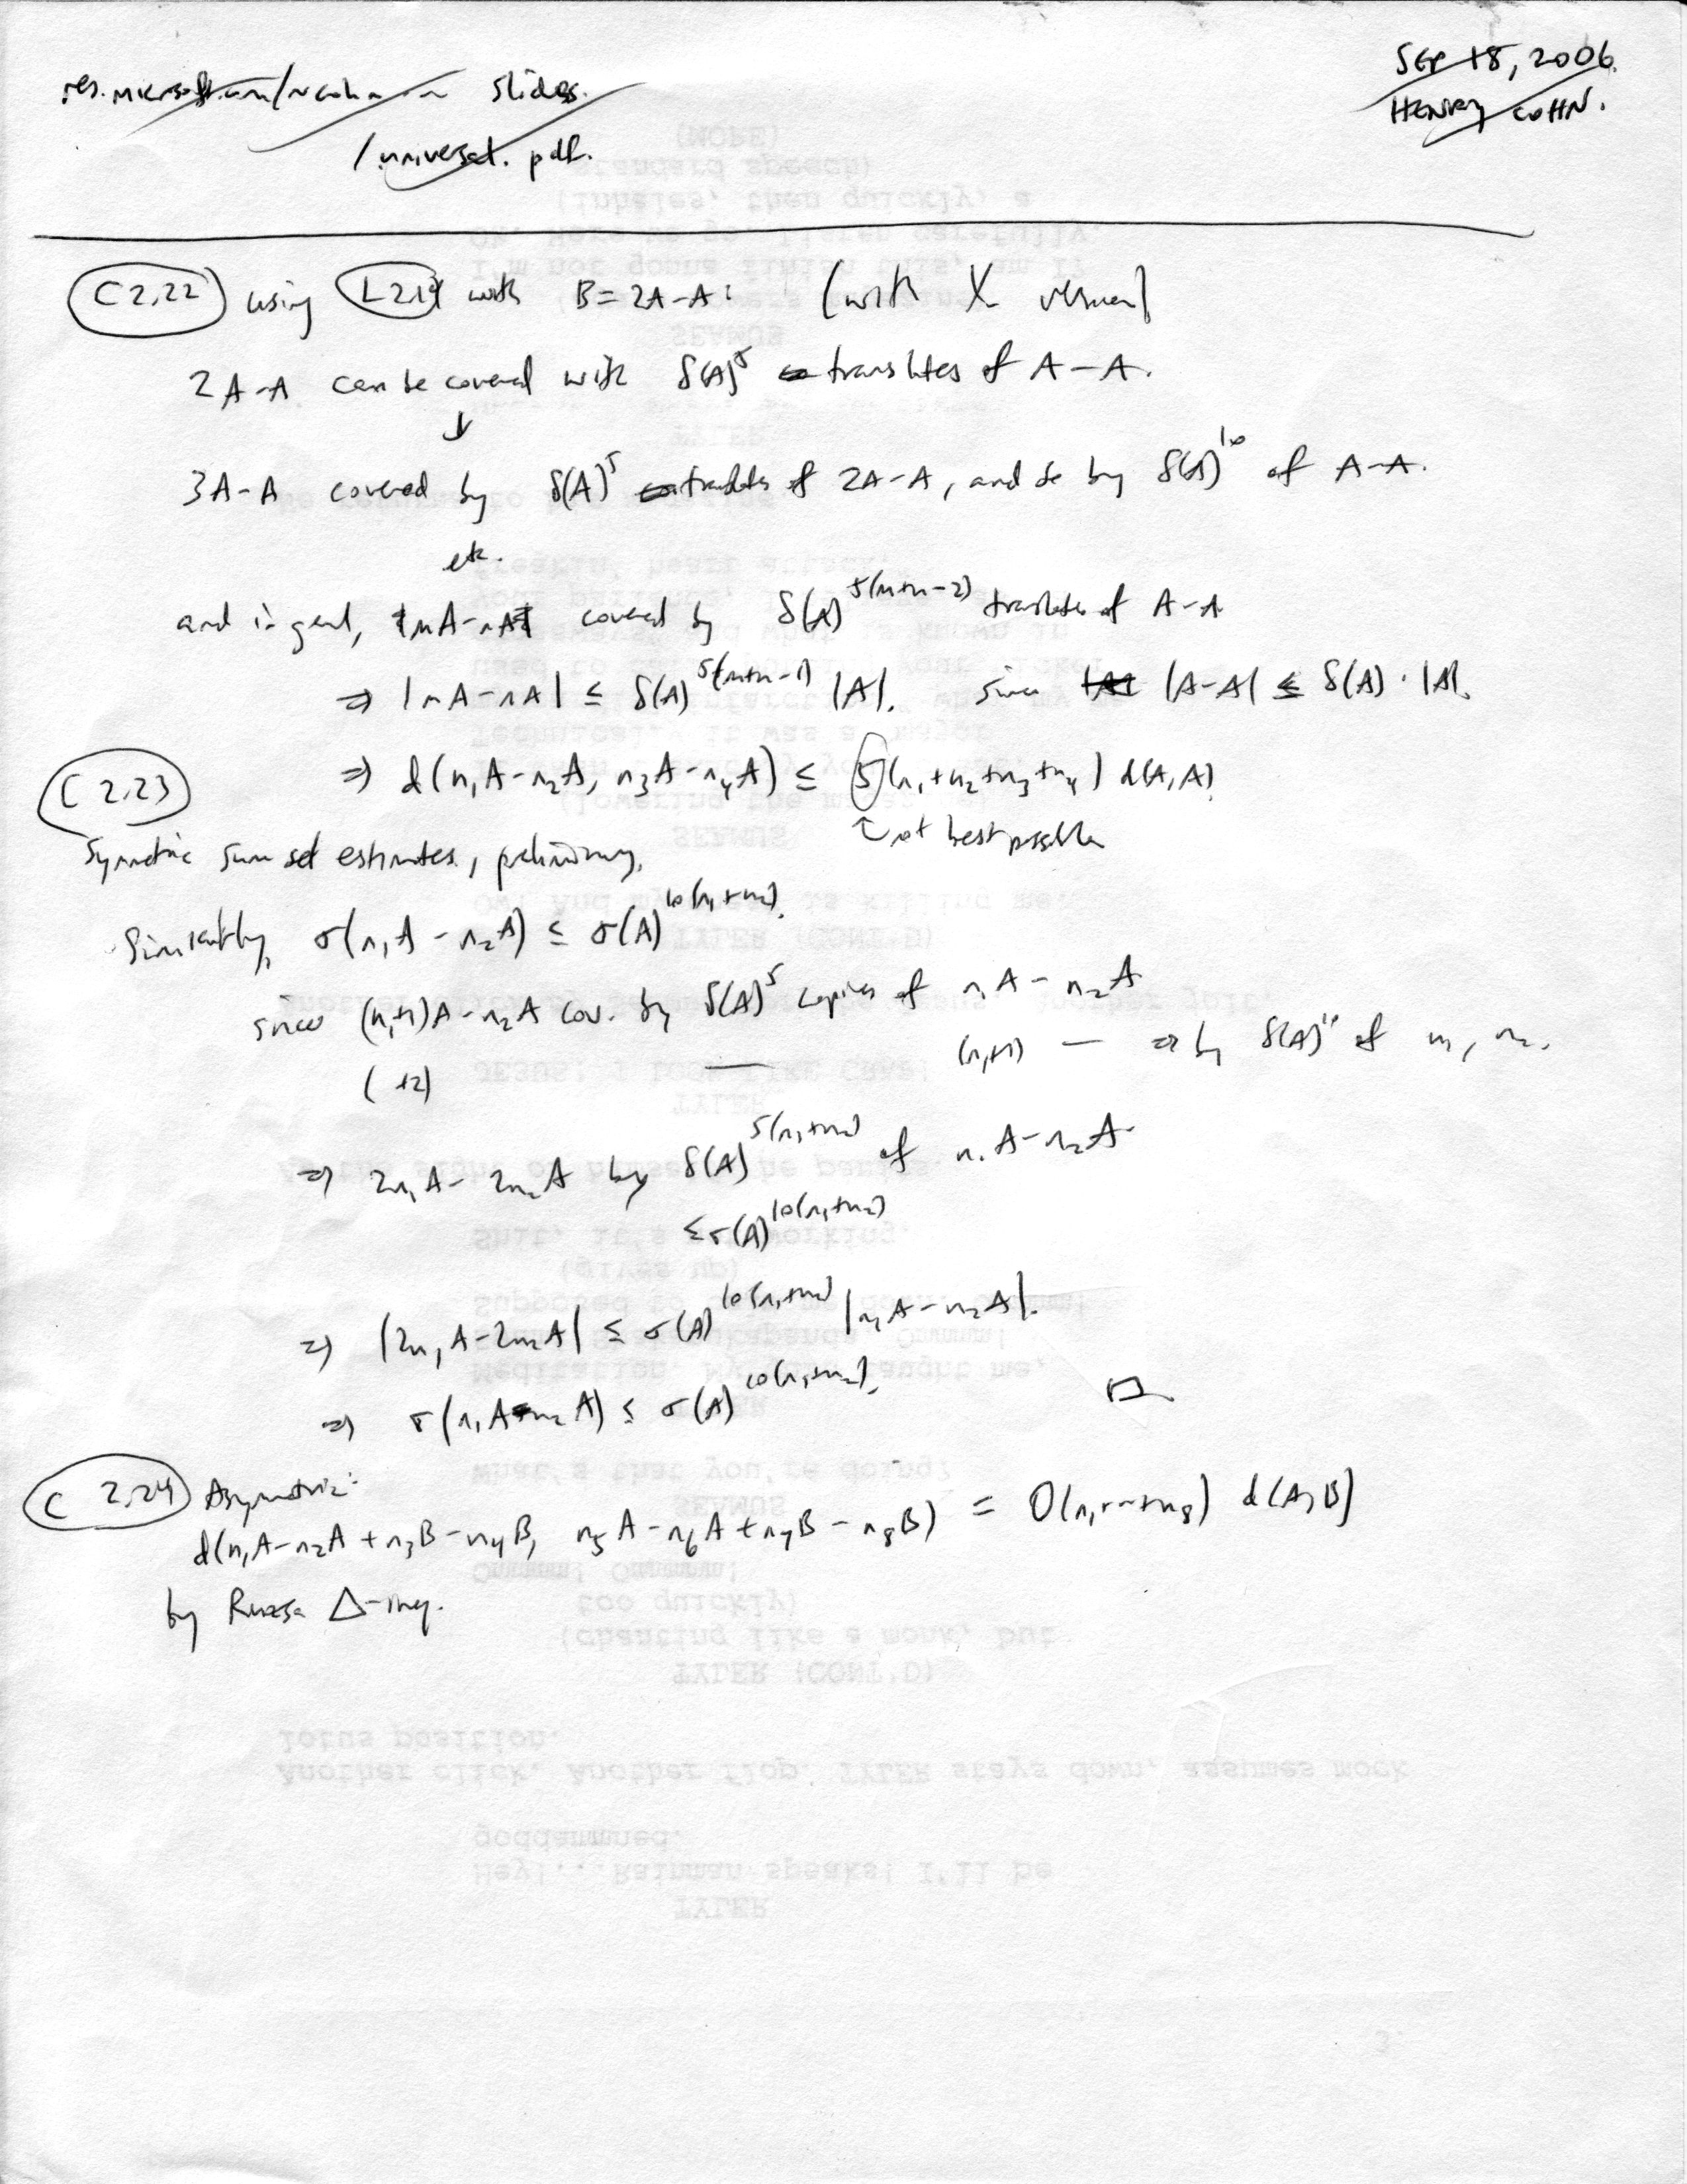 res.microsoft.com/~cohn slides.
/universal.pdf.
SEP 18, 2006.
HENRY COHN.
C 2.22 using L 2.19 with B = 2A-A: (with X version)
2A-A can be covered with δ(A)^5 translates of A-A.
↓
3A-A covered by δ(A)^5 translates of 2A-A, and so by δ(A)^10 of A-A.
etc.
and in genl, mA-nA covered by δ(A)^5(m+n-2) translates of A-A
⇒ |mA-nA| ≤ δ(A)^5(m+n-1) |A|. since |A-A| ≤ δ(A)·|A|.
C 2.23 ⇒ d(n₁A-n₂A, n₃A-n₄A) ≤ 5(n₁+n₂+n₃+n₄) d(A,A)
↑not best possible
Symmetric sum set estimates, preliminary.
Similarly, σ(n₁A-n₂A) ≤ σ(A)^10(n₁+n₂).
since (n₁+1)A-n₂A cov. by δ(A)^5 copies of n₁A-n₂A
(+2) — (n₁+1) — ⇒ by δ(A)^10 of n₁, n₂.
⇒ 2n₁A-2n₂A by δ(A)^5(n₁+n₂) of n₁A-n₂A.
≤ σ(A)^10(n₁+n₂)
⇒ |2n₁A-2n₂A| ≤ σ(A)^10(n₁+n₂) |n₁A-n₂A|.
⇒ σ(n₁A-n₂A) ≤ σ(A)^10(n₁+n₂). □
C 2.24 Asymmetric:
d(n₁A-n₂A+n₃B-n₄B, n₅A-n₆A+n₇B-n₈B) = O(n₁+--+n₈) d(A,B)
by Ruzsa Δ-ineq.